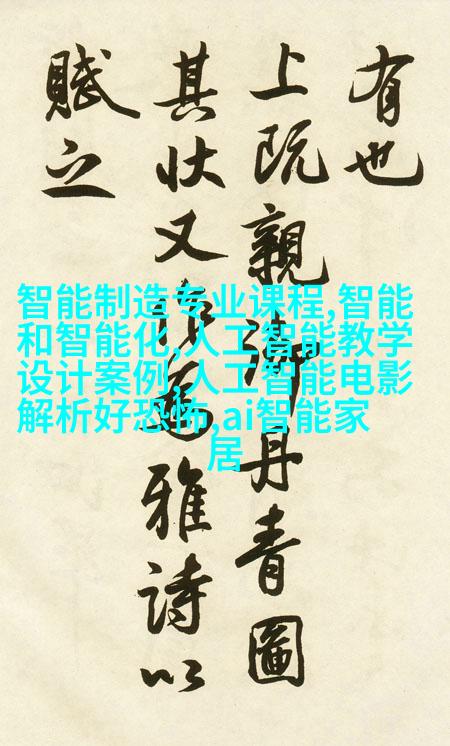 有也
上既親御丹青圖
其状又作雅詩以
賦之
智能制造专业课程,智能
和智能化,人工智能教学
设计案例,人工智能电影
解析好恐怖,ai智能家
居